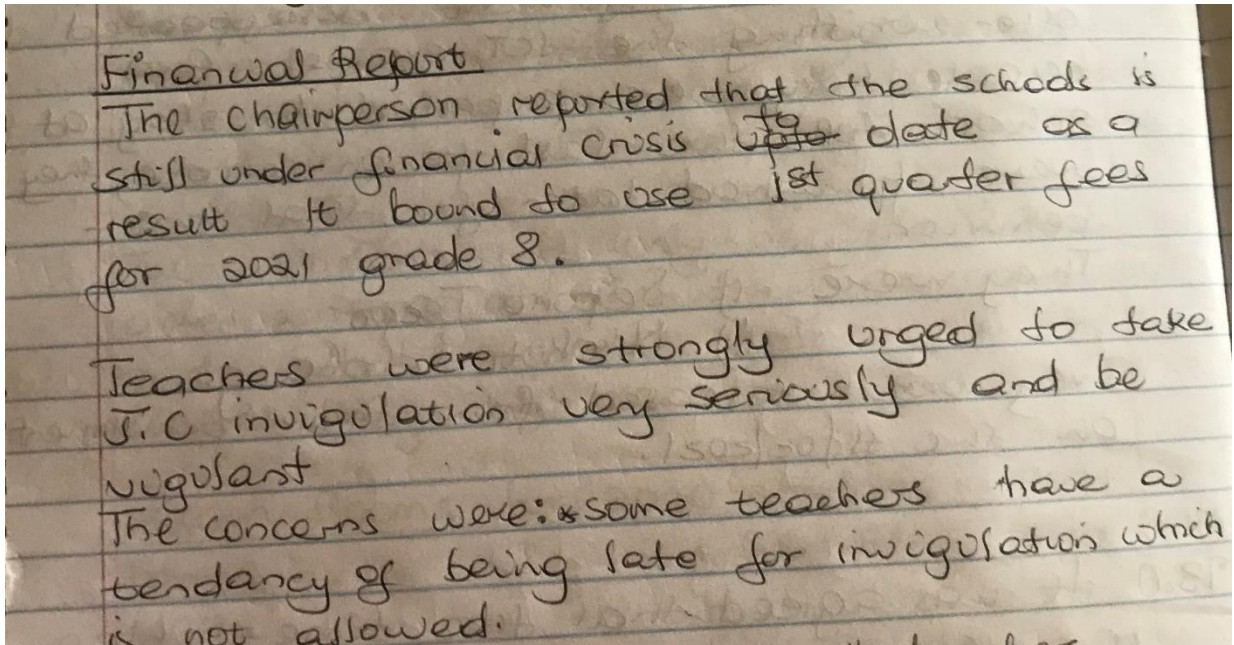 Financial Report
The chairperson reported that the schools is
still under financial crisis to date as a
result It bound to use 1st quarter fees
for 2021 grade 8.
Teachers were strongly urged to take
J.C invigilation very seriously and be
vigilant
The concerns were: *some teachers have a
tendancy of being late for invigilation which
is not allowed.